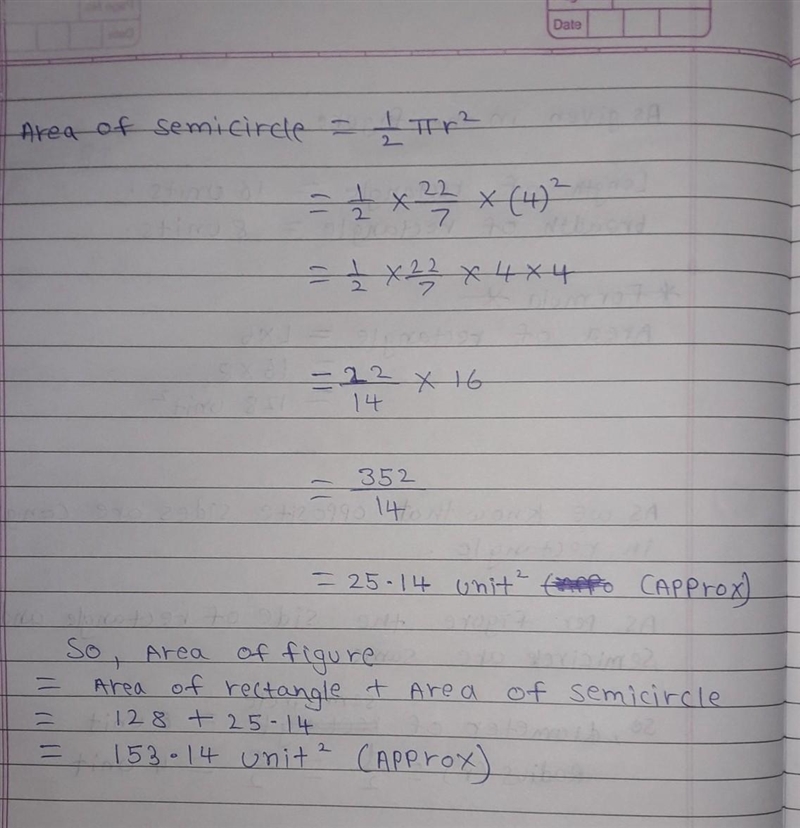 Date
Area of semicircle = 1/2 πr²
= 1/2 × 22/7 × (4)²
= 1/2 × 22/7 × 4 × 4
= 22/14 × 16
= 352/14
= 25.14 unit² (Approx)
So, Area of figure
= Area of rectangle + Area of semicircle
= 128 + 25.14
= 153.14 unit² (Approx)